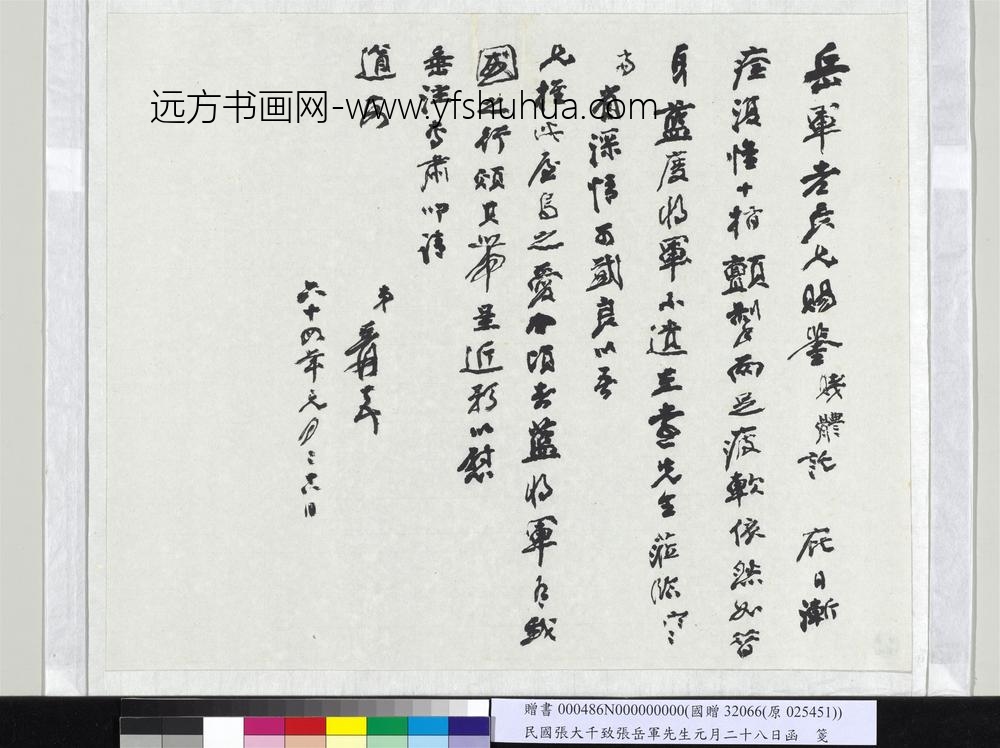 岳軍老長兄賜鑒賤體託 庇日漸
痊復惟十指顫掣兩足疲軟依然如昔
月藍廣將軍小遺生畫先生蒞臨
尚 深情可感良以吾
兄推此屋烏之愛 頃者藍將軍有越
國之行頌其帶呈近影以慰
垂注專肅叩請
道安
弟爰奉
六十四年元月二十八日
远方书画网-www.yfshuhua.com
贈書 000486N000000000(國贈 32066(原 025451))
民國張大千致張岳軍先生元月二十八日函 箋